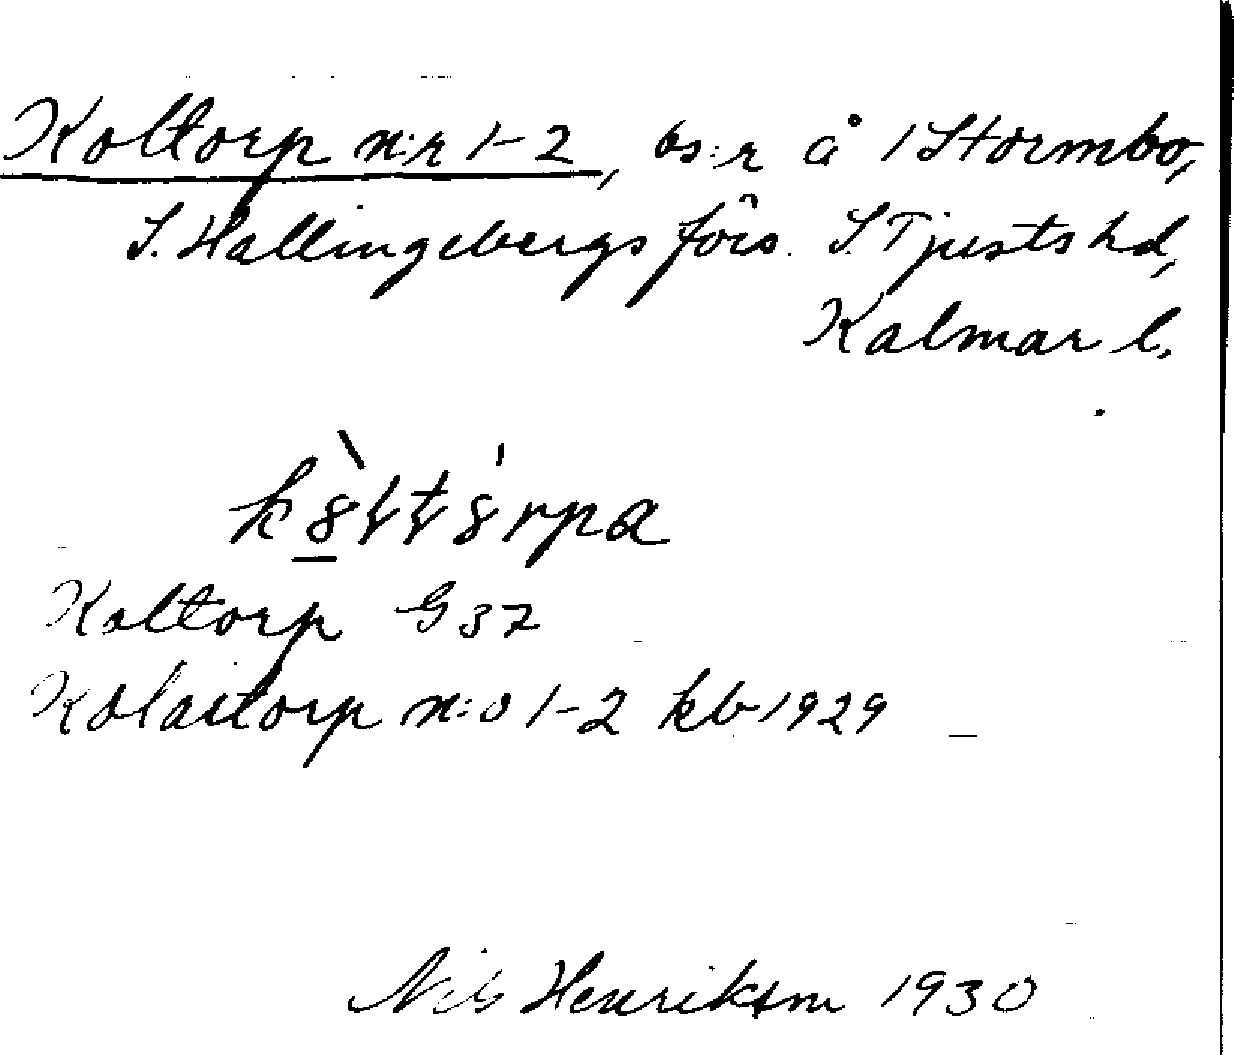 Koltorp n:r 1-2, bs:r å 1 Stormbo,
S. Hallingebergs förs. S. Tjusts hd,
Kalmar l.
Koltorp G 37
Kolartorp n:o 1-2 kb 1929
Nils Henriksm 1930